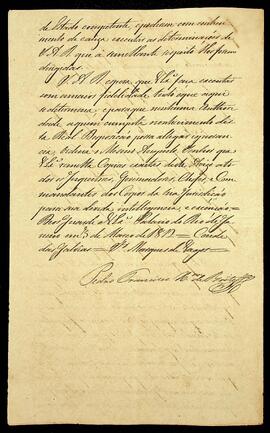 de Estado competente, expediram com conhecimento
mento de cauza executar as determinaçoens de
S. A. R. que a semelhante respeito lhe forem
dirigidas.
S. A. R. espera, que V. Exª. faça executar
com a maior fidelidade tudo o que aqui
se determina, e para que nenhuma
desde a quem cumpra o conhecimento des
ta Real Dispozição possa allegar ignoran
cia, Ordena o Mesmo Augusto Senhor que
V. Exª. remetta Copias exactas deste Avizo a to
dos os Inspectores, Governadores, Chefes, e Com
mandantes dos Corpos da sua Jurisdição
para sua devida intelligencia, e execução =
Deos Guarde a V. Exª. Palacio do Rio de Ja
neiro em 3 de Março de 1812 = Conde
das Galvêas = Sr. Marquez de
Pedro Francisco